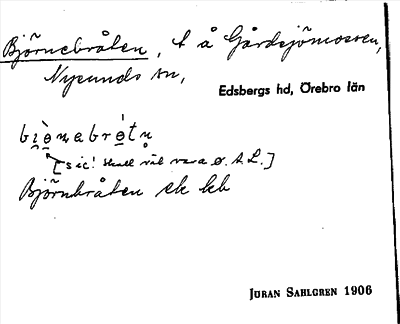 Björnebråten, t å Gårdsjömossen,
Nysunds sn,
Edsbergs hd, Örebro län
[sic! skall väl vara ø. A L.]
Björnbråten ek kb
JÖRAN SAHLGREN 1906